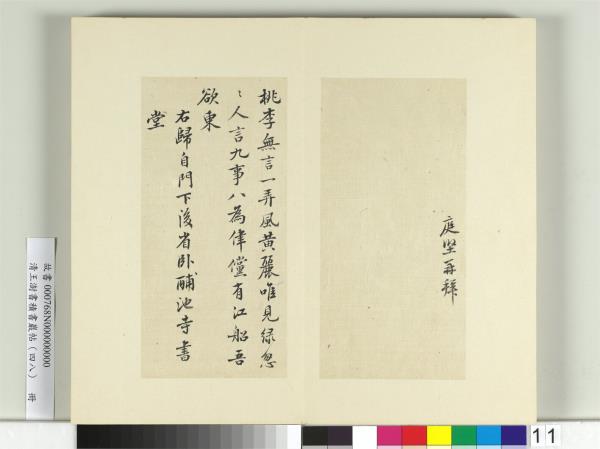 庭堅再拜
桃李無言一弄風黃麗唯見綠怱
〻人言九事八為律儻有江船吾
欲東
右歸自門下後省臥酺池寺書
堂
故書 000768N000000000
清王澍書積書巖帖(四八) 冊
11